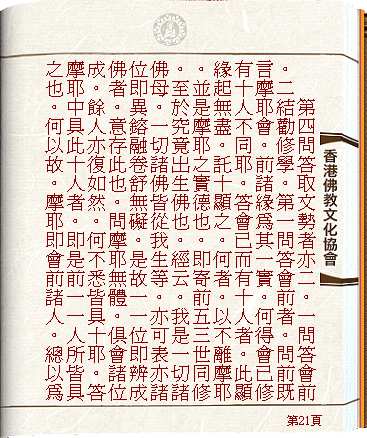 第四問答取文勢者亦二。一問答會前
。二結勸修學。第一問答會前者。問前既
言摩耶會。前諸緣為其一實。何得會已修
有十人不同耶。答會已而有十人者。此顯
緣起無盡。託十顯之。何者。以不離摩耶
。並是摩耶之實德也。即寄前五三世同修
。至於究竟出生佛也。經云。我是一切諸
佛母。一切諸佛皆從我生等。亦可表亦諸
位即異鎔融卷舒無礙。是故一一位即辨成
佛者。意存此也。問摩耶無體。俱會諸位
成。餘人亦復如然。何不悉皆具十耶。答
摩耶中具此十人者。即是前一一人所皆具
之也。何以故。摩耶即會前諸人。總以為
香港佛教文化協會
第21頁